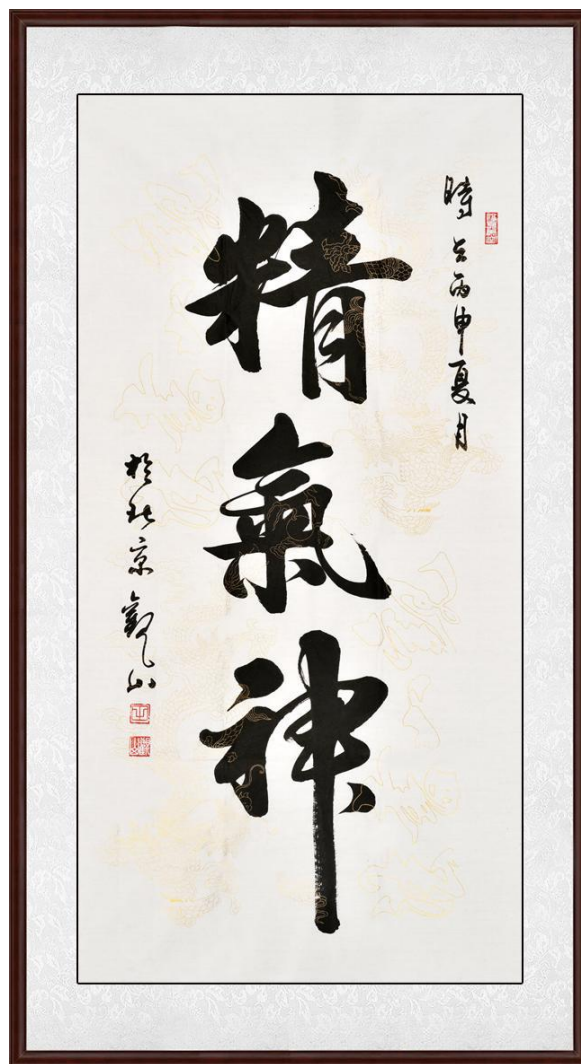 時在丙申夏月
精氣神
於北京觀山